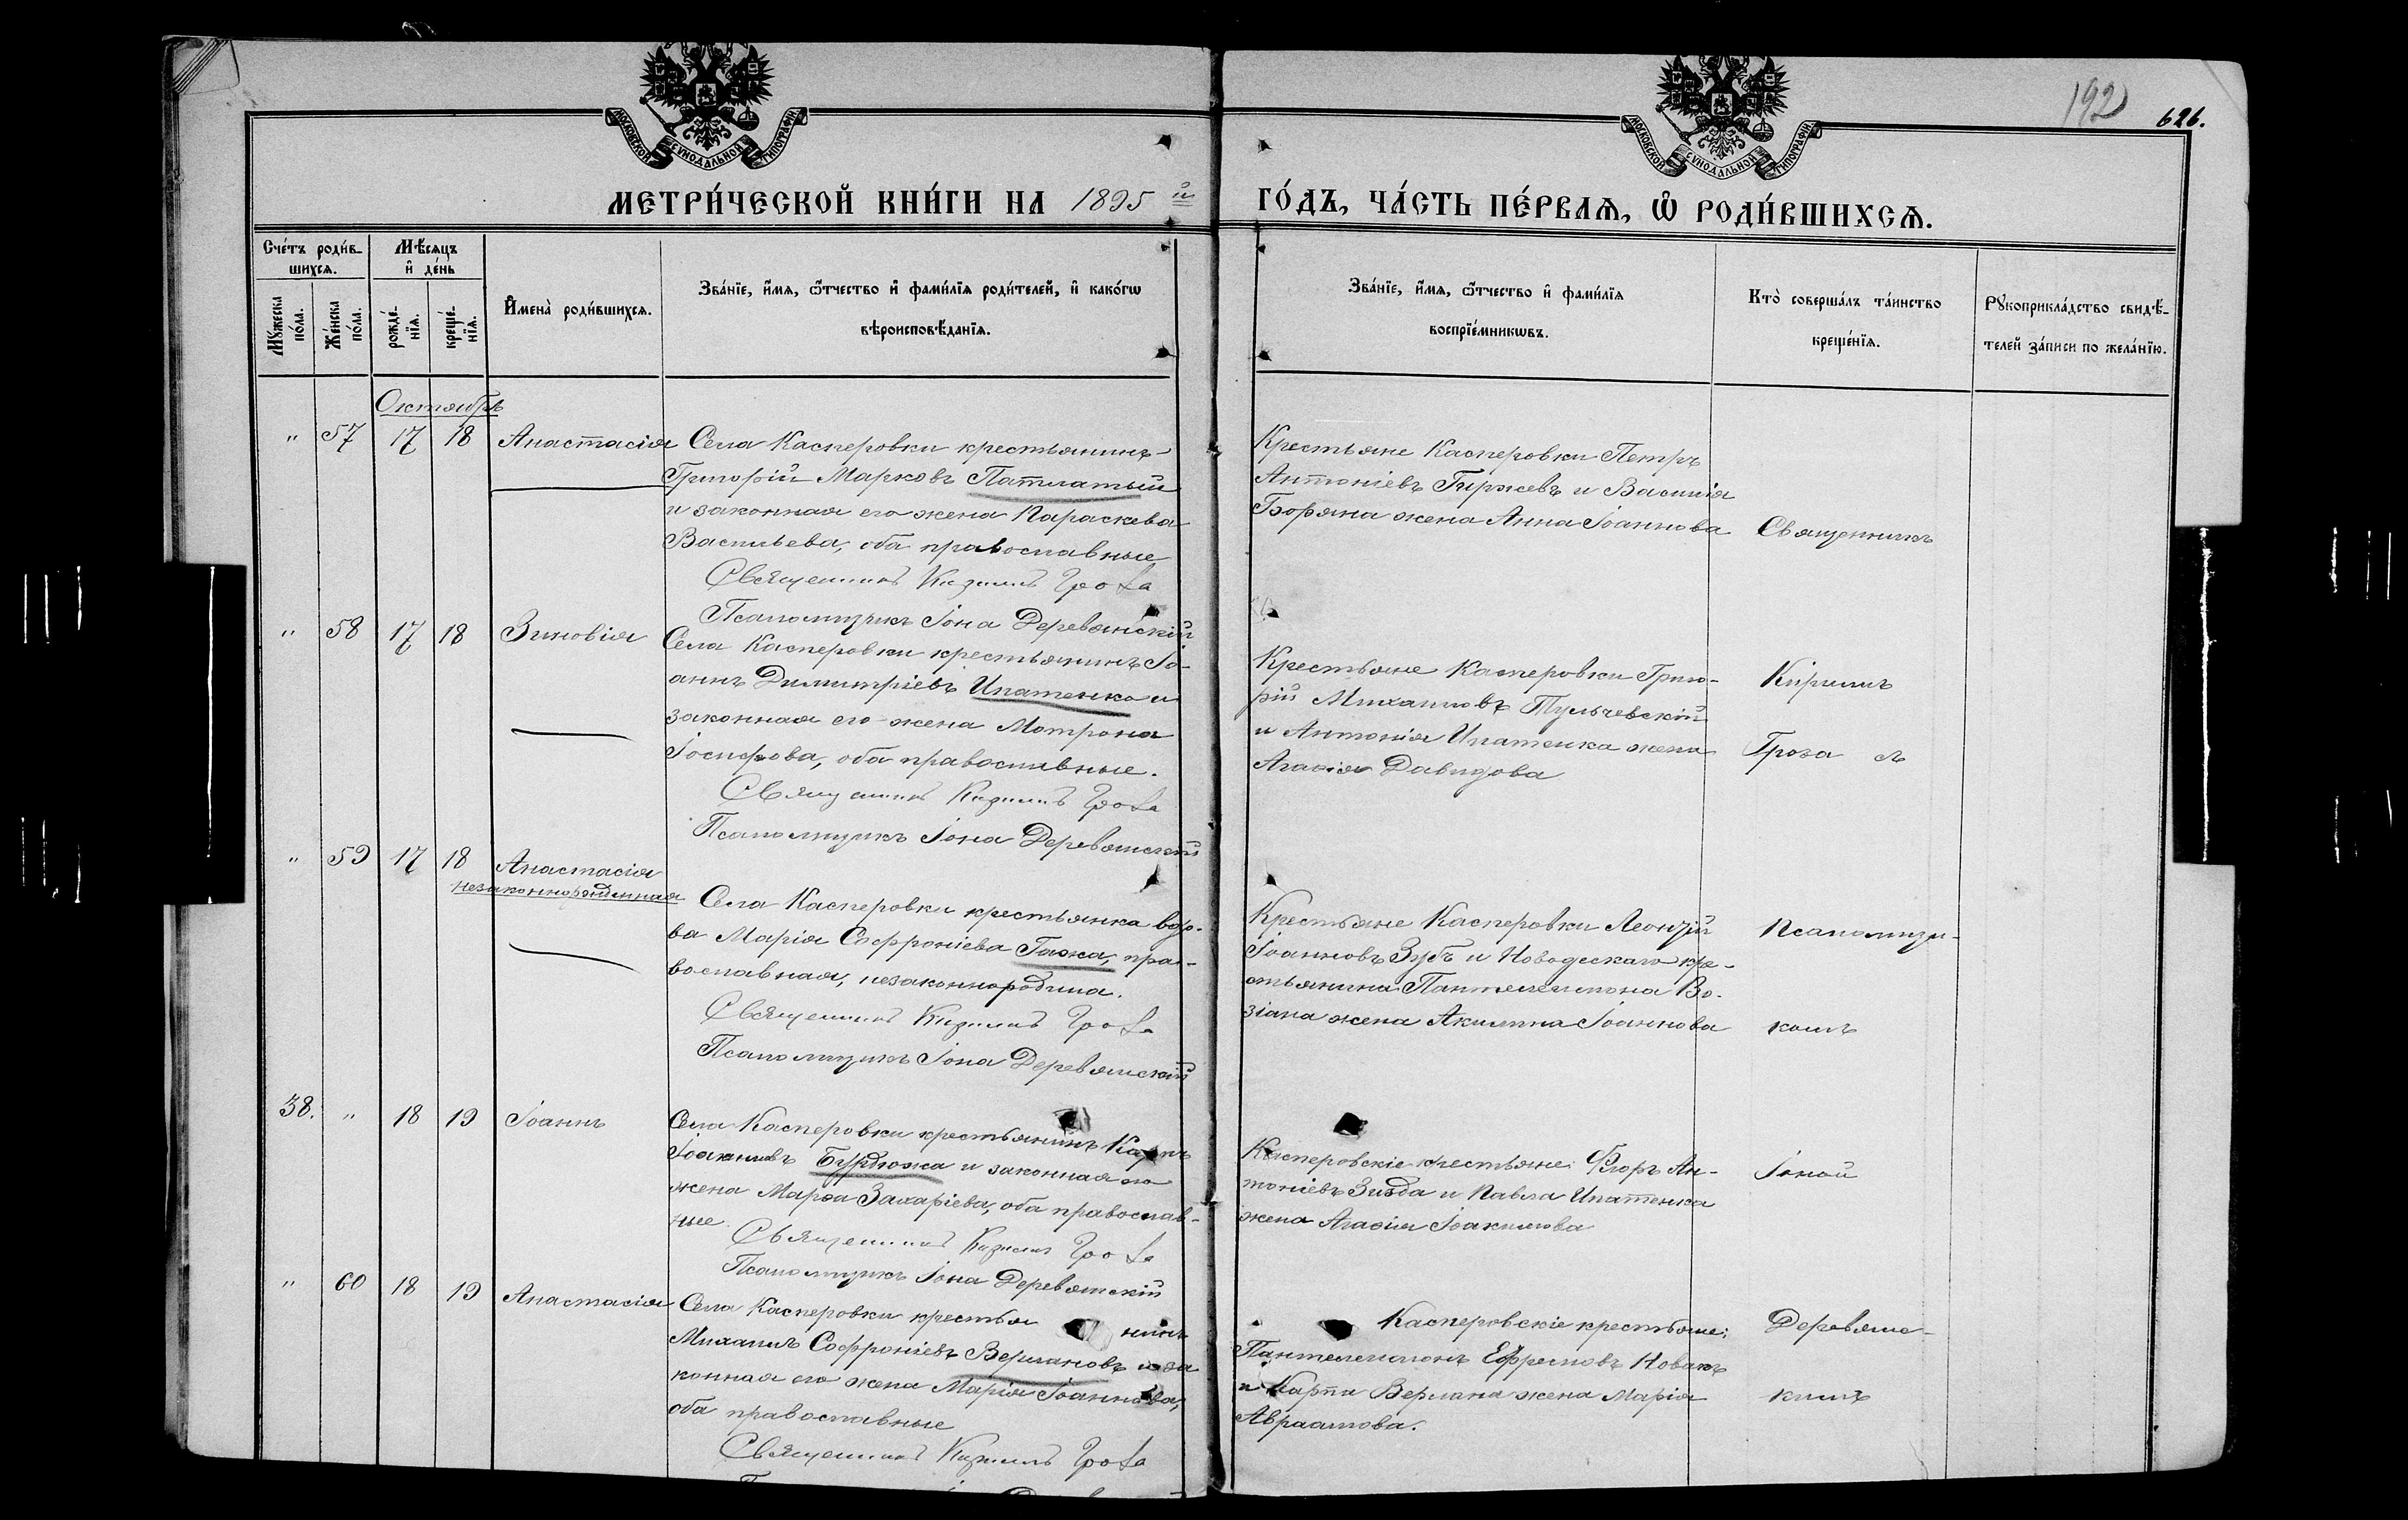 МОСКОВСКОЙ СѴНОДАЛЬНОЙ ТИПОГРАФІИ
МОСКОВСКОЙ СѴНОДАЛЬНОЙ ТИПОГРАФІИ
192 626.
МЕТРИ́ЧЕСКОЙ КНИ́ГИ НА 1895 й ГО́ДЪ, ЧА́СТЬ ПЕ́РВАѦ, Ѡ҆ РОДИ́ВШИХСѦ.
Сче́тъ роди́в-
шихсѧ.
Мꙋ́жеска по́ла.
Же́нска по́ла.
Мѣ́сѧцъ
и҆ де́нь
рожде́нїѧ.
креще́нїѧ.
И҆мена̀ роди́вшихсѧ.
Зва́нїе, и҆́мѧ, ѻ҆́тчество и҆ фами́лїѧ роди́телей, и҆ како́гѡ
вѣроисповѣ́данїѧ.
Зва́нїе, и҆́мѧ, ѻ҆́тчество и҆ фами́лїѧ
воспрїе́мникѡвъ.
Кто̀ соверша́лъ та́инство
креще́нїѧ.
Рꙋкоприкла́дство свидѣ́-
телей за́писи по жела́нїю.
Октябрь
" 57 17 18 Анастасія
Села Касперовки крестьянинъ
Григорій Марковъ Патлатый
и законная его жена Параскева
Васильева, оба православные
Священникъ Кириллъ Гроза
Псаломщикъ Іона Деревянскій
Крестьяне Касперовки Петръ
Антоніевъ Гиржевъ и Василія
Боряна жена Анна Іоаннова
Священникъ
" 58 17 18 Зиновія
Села Касперовки крестьянинъ Іо-
аннъ Димитріевъ Ипатенко и
законная его жена Мотрона
Іосифова, оба православные.
Священникъ Кириллъ Гроза
Псаломщикъ Іона Деревянскій
Крестьяне Касперовки Григо-
рій Михаиловъ Тульчевскій
и Антонія Ипатенка жена
Агафія Давидова
Кириллъ
Гроза съ
" 59 17 18 Анастасія
незаконнорожденная
Села Касперовки крестьянка вдо-
ва Марія Софроніева Гажа, пра-
вославная, незаконнородила.
Священникъ Кириллъ Гроза
Псаломщикъ Іона Деревянскій
Крестьяне Касперовки Леонтій
Іоанновъ Зубъ и Новодескаго кре-
стьянина Пантелеимона Во-
зіана жена Акилина Іоаннова
Псаломщи-
комъ
38. " 18 19 Іоаннъ
Села Касперовки крестьянинъ Карпъ
Іоанновъ Бурдюжа и законная его
жена Марѳа Захаріева, оба православ-
ные
Священникъ Кириллъ Гроза
Псаломщикъ Іона Деревянскій
Касперовскіе крестьяне: Флоръ Ан-
тоніевъ Зизда и Павла Ипатенка
жена Агафія Іоакимова
Іоной
" 60 18 19 Анастасія
Села Касперовки крестья нинъ
Михаилъ Софроніевъ Вермановъ и за
конная его жена Марія Іоаннова,
оба православные
Священникъ Кириллъ Гроза
Касперовскіе крестьяне:
Пантелеимонъ Ефремовъ Новакъ
и Карпа Вермана жена Марія
Авраамова.
Деревянс-
кимъ